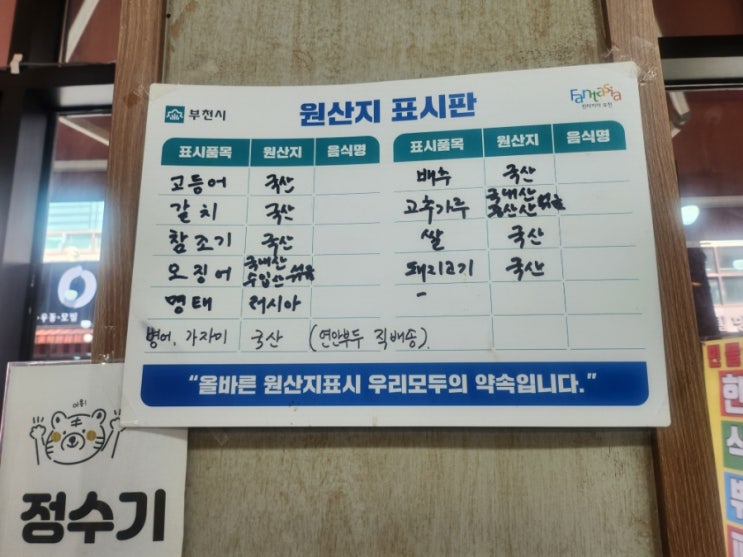 부천시
원산지 표시판
Fantasia
판타지아 부천
표시품목 원산지 음식명
고등어 국산
갈치 국산
참조기 국산
오징어 국내산 수입산 섞음
명태 러시아
병어, 가자미 국산 (연안부두 직배송).
표시품목 원산지 음식명
배추 국산
고추가루 국내산 섞음
쌀 국산
돼지고기 국산
-
"올바른 원산지표시 우리모두의 약속입니다."
정수기
우동·모밀
한
식